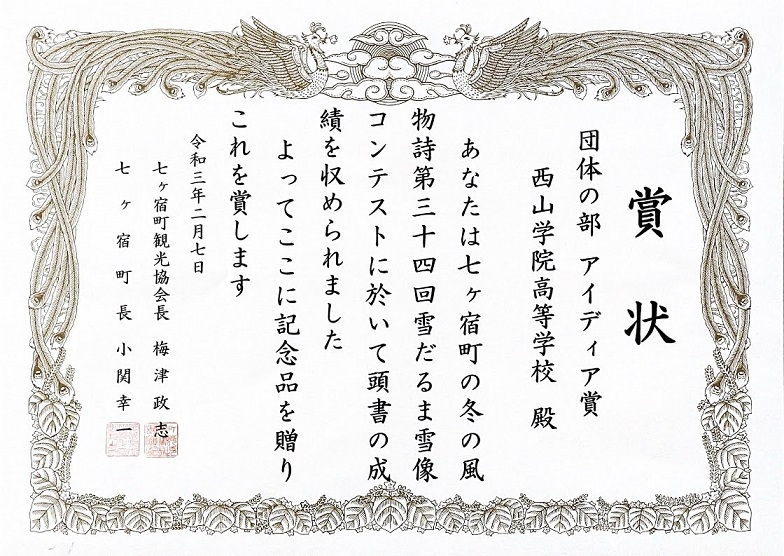 賞状
団体の部 アイディア賞
西山学院高等学校 殿
あなたは七ヶ宿町の冬の風
物詩第三十四回雪だるま雪像
コンテストに於いて頭書の成
績を収められました
よってここに記念品を贈り
これを賞します
令和三年二月七日
七ヶ宿町観光協会長 梅津政志
七ヶ宿町長 小関幸一